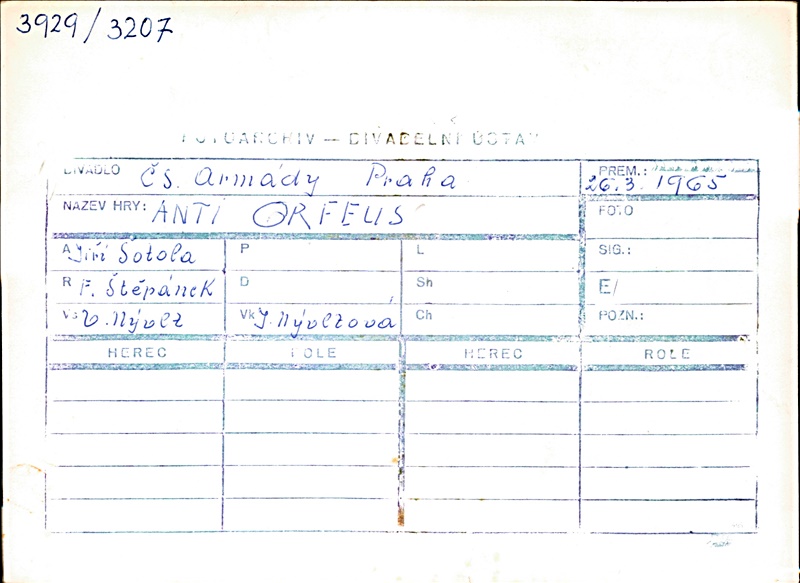 3929/3207
FOTOARCHIV — DIVADELNÍ ÚSTAV
DIVADLO Čs. Armády Praha PREM.: 26.3. 1965
NÁZEV HRY: ANTI ORFEUS FOTO
A Jiří Šotola P L SIG.:
R F. Štěpánek D Sh E/
Vs V. Nývlt Vk J. Nývltová Ch POZN.:
HEREC ROLE HEREC ROLE